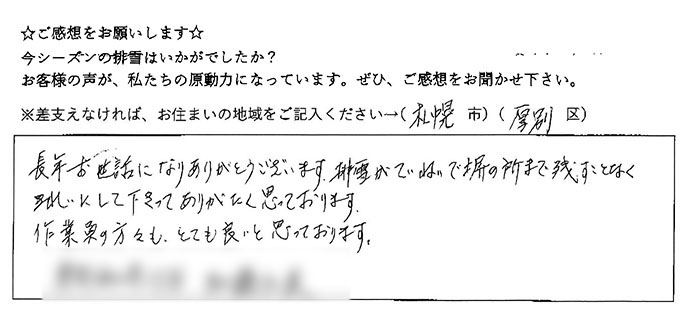 ☆ご感想をお願いします☆
今シーズンの排雪はいかがでしたか?
お客様の声が、私たちの原動力になっています。ぜひ、ご感想をお聞かせ下さい。
※差支えなければ、お住まいの地域をご記入ください→(札幌 市)(厚別 区)
長年お世話になりありがとうございます。排雪がていねいで塀の所まで残すことなく
きれいにして下さってありがたく思っております。
作業員の方々も、とても良いと思っております。